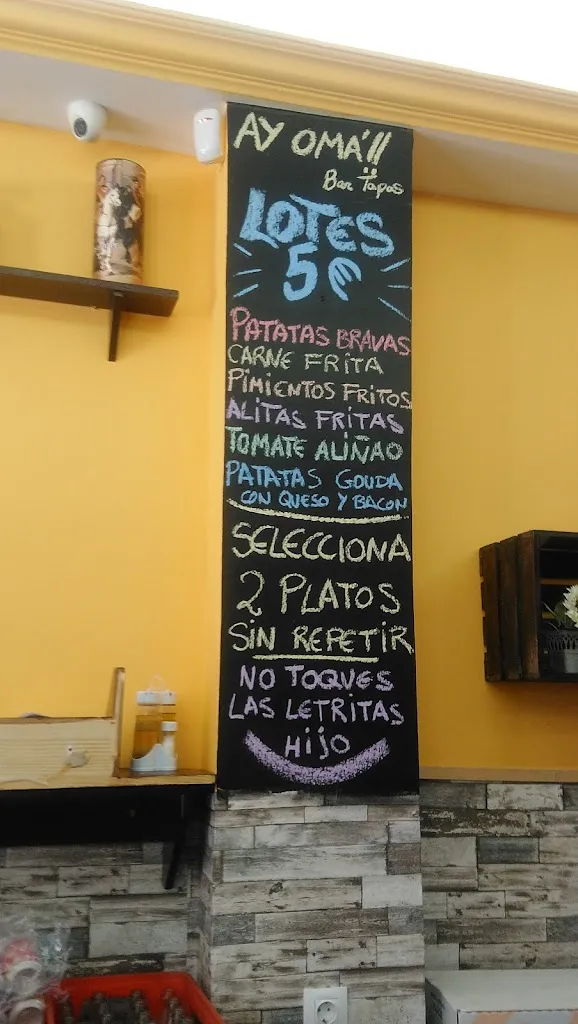 AY OMÁ!!
Bar Tapas
LOTES
5€
PATATAS BRAVAS
CARNE FRITA
PIMIENTOS FRITOS
ALITAS FRITAS
TOMATE ALIÑAO
PATATAS GOUDA
CON QUESO Y BACON
SELECCIONA
2 PLATOS
SIN REPETIR
NO TOQUES
LAS LETRITAS
HIJO